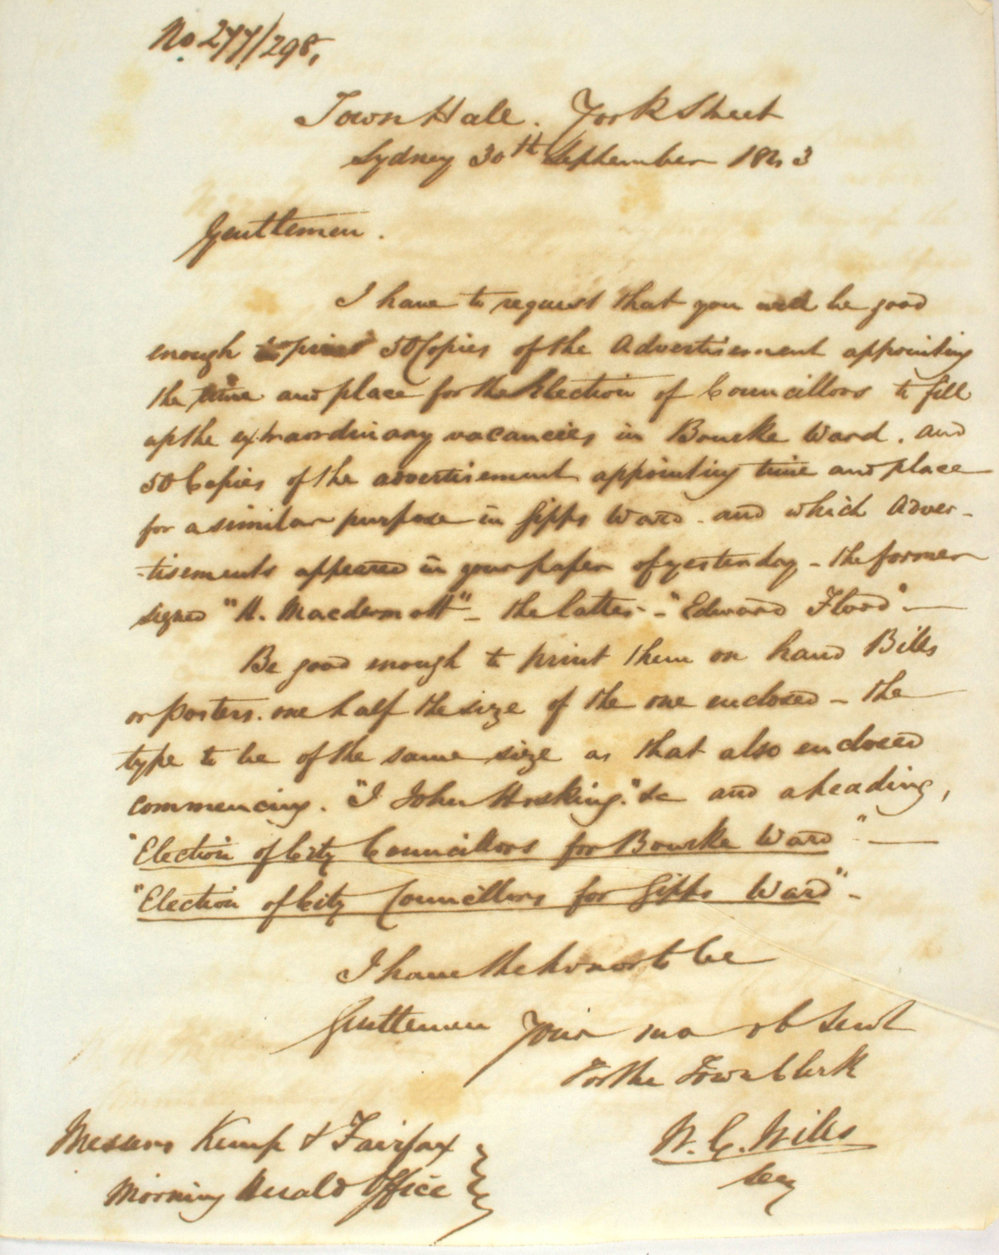 No. 277/298,
Town Hall. York Street
Sydney 30th September 1843
Gentlemen.
I have to request that you will be good
enough to print 50 Copies of the Advertisement appointing
the time and place for the Election of Councillors to fill
up the extraordinary vacancies in Bourke Ward. and
50 Copies of the advertisement appointing time and place
for a similar purpose in Gipps Ward. and which Adver-
-tisements appeared in your paper of yesterday - the former
signed "H. Macdermott" - the latter - "Edward Flood". —
Be good enough to print them on hand Bills
or posters. one half the size of the one enclosed - the
type to be of the same size as that also enclosed
commencing. "I John Hosking." &c and a heading,
"Election of City Councillors for Bourke Ward" —
"Election of City Councillors for Gipps Ward" -
I have the honor to be
Gentlemen Your mo ob Servt
For the Town Clerk
W. C. Wills
Messrs Kemp & Fairfax
Morning Herald Office